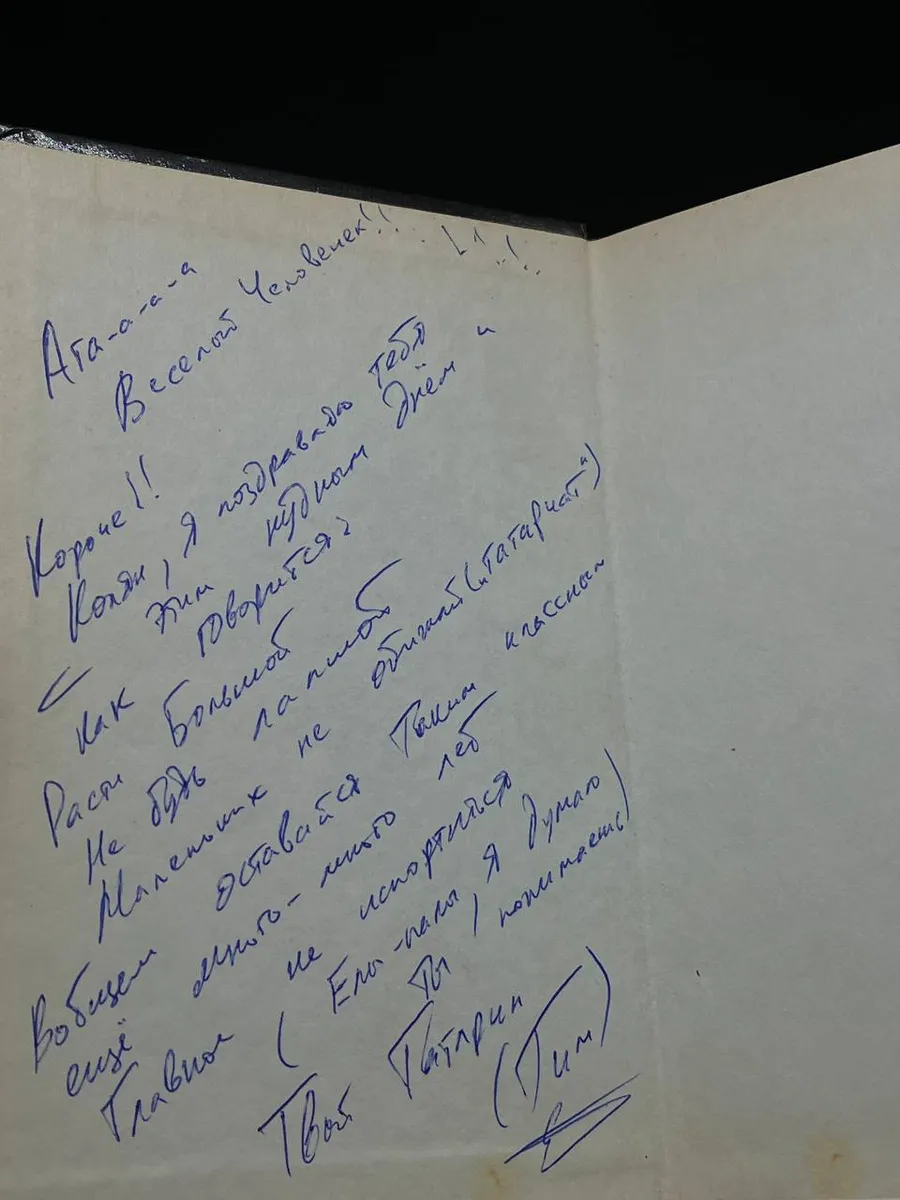 Ата-а-а-а
Веселый Человечек!! . . !.
Короче!!
Колян, я поздравляю тебя
с этим нудным Днём и
как говорится:
Расти Большой
Не будь лапшой
Маленьких не обижай („татарчат")
Вобщем оставайся таким классным
ещё много-много лет
Главное не испортиться
( Елы-палы, я думаю)
ты понимаешь)
Твой Татарин
(Тим)